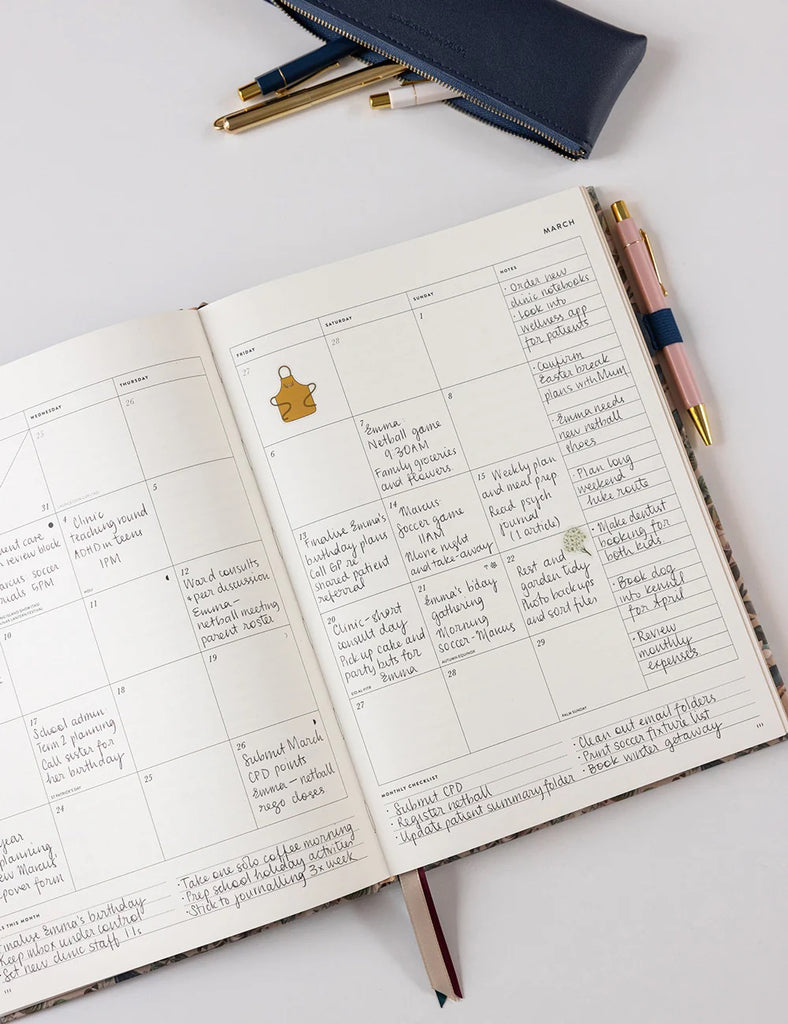 WEDNESDAY
THURSDAY
25
26
31
care
review block
soccer
5PM
4
Clinic
teaching round
ADHD in teens
1PM
5
10
11
12
Ward consults
+ peer discussion
Emma —
netball meeting
parent roster
17
School admin
Term 2 planning
Call sister for
her birthday
ST PATRICK'S DAY
18
19
year
planning
Marcus'
form
24
25
26
Submit March
CPD points
Emma — netball
rego closes
THIS MONTH
Finalise Emma's birthday
Keep inbox under control
Set new clinic staff 1:1s
· Take one solo coffee morning
· Prep school holiday activities
· Stick to journalling 3x week
III
MARCH
FRIDAY
SATURDAY
SUNDAY
NOTES
27
28
1
6
7
Emma:
Netball game
9:30AM
Family groceries
and flowers
8
13
Finalise Emma's
birthday plans
Call GP re
shared patient
referral
14
Marcus:
Soccer game
11AM
Movie night
and take-away
15
Weekly plan
and meal prep
Read psych
journal
(1 article)
20
Clinic - short
consult day
Pick up cake and
party bits for
Emma
EID AL-FITR
21
Emma's b'day
gathering
Morning
soccer - Marcus
AUTUMN EQUINOX
22
Rest and
garden tidy
Photo backups
and sort files
27
28
29
PALM SUNDAY
· Order new
clinic notebooks
· Look into
wellness app
for patients
· Confirm
Easter break
plans with Mum
· Emma needs
new netball
shoes
· Plan long
weekend
hike route
· Make dentist
booking for
both kids
· Book dog
into kennel
for April
· Review
monthly
expenses
MONTHLY CHECKLIST
· Submit CPD
· Register netball
· Update patient summary folder
· Clean out email folders
· Print soccer fixture list
· Book winter getaway
III